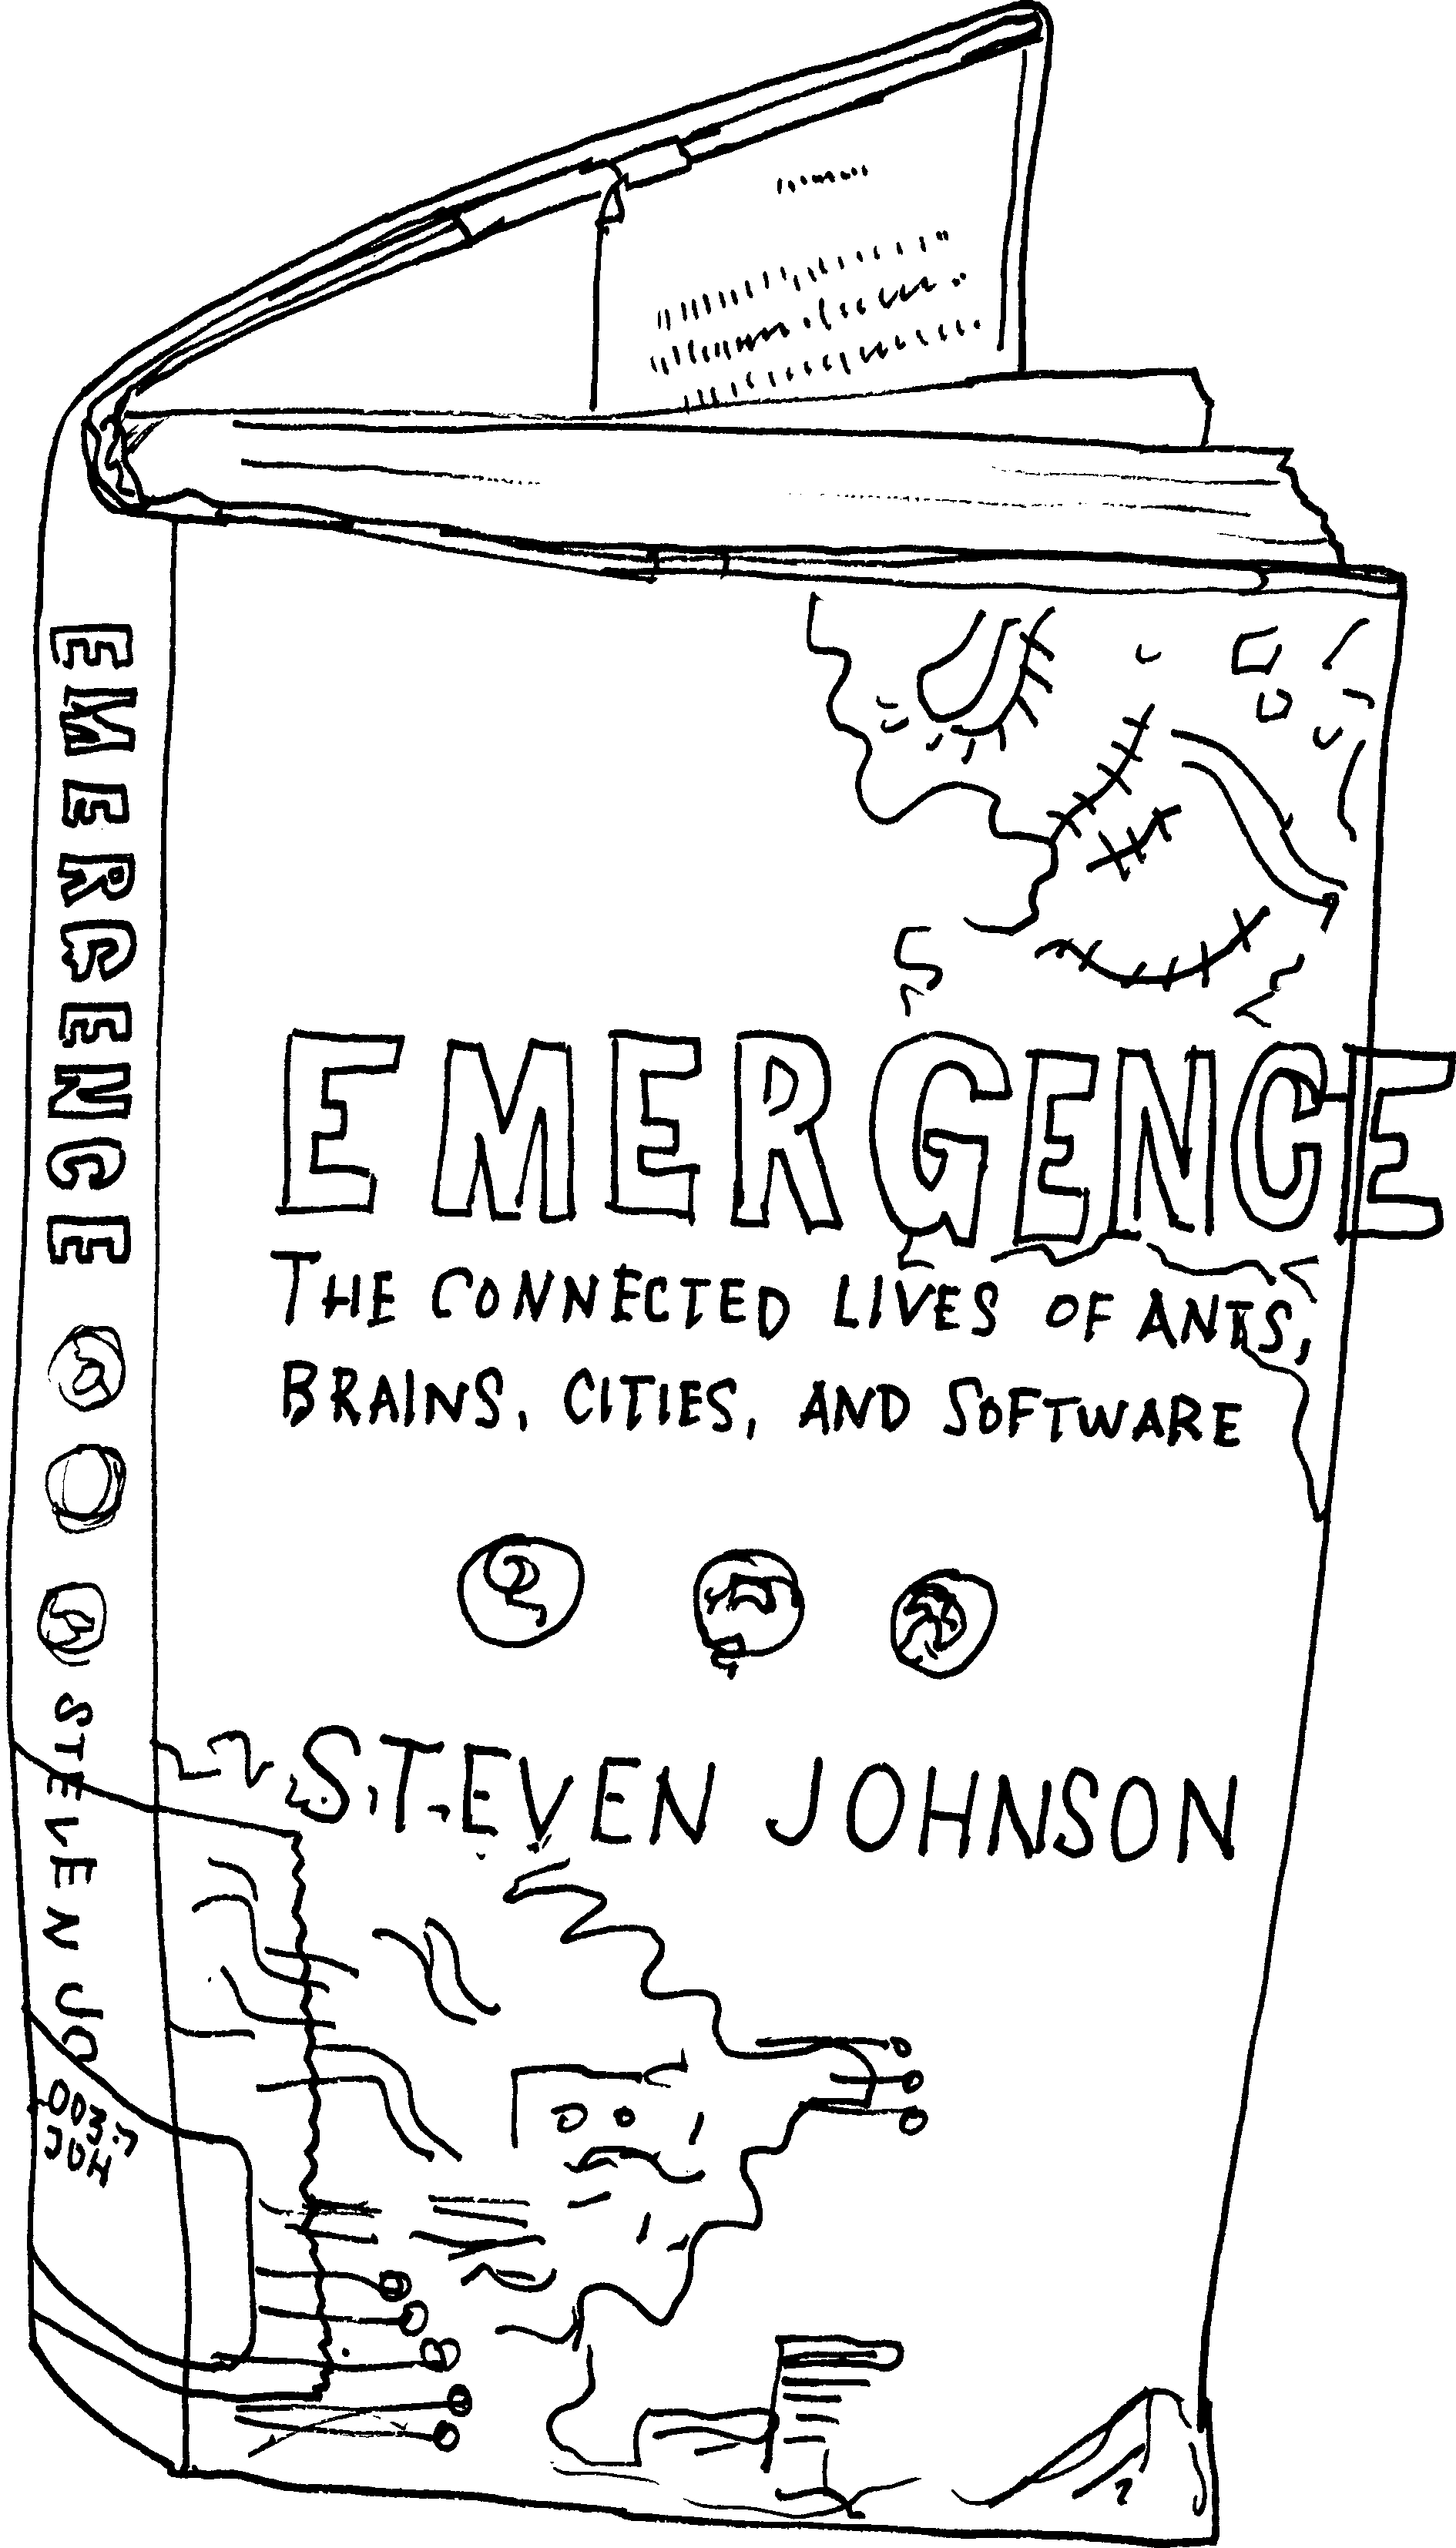 EMERGENCE
STEVEN JO
003.7
JOH
EMERGENCE
THE CONNECTED LIVES OF ANTS,
BRAINS, CITIES, AND SOFTWARE
STEVEN JOHNSON